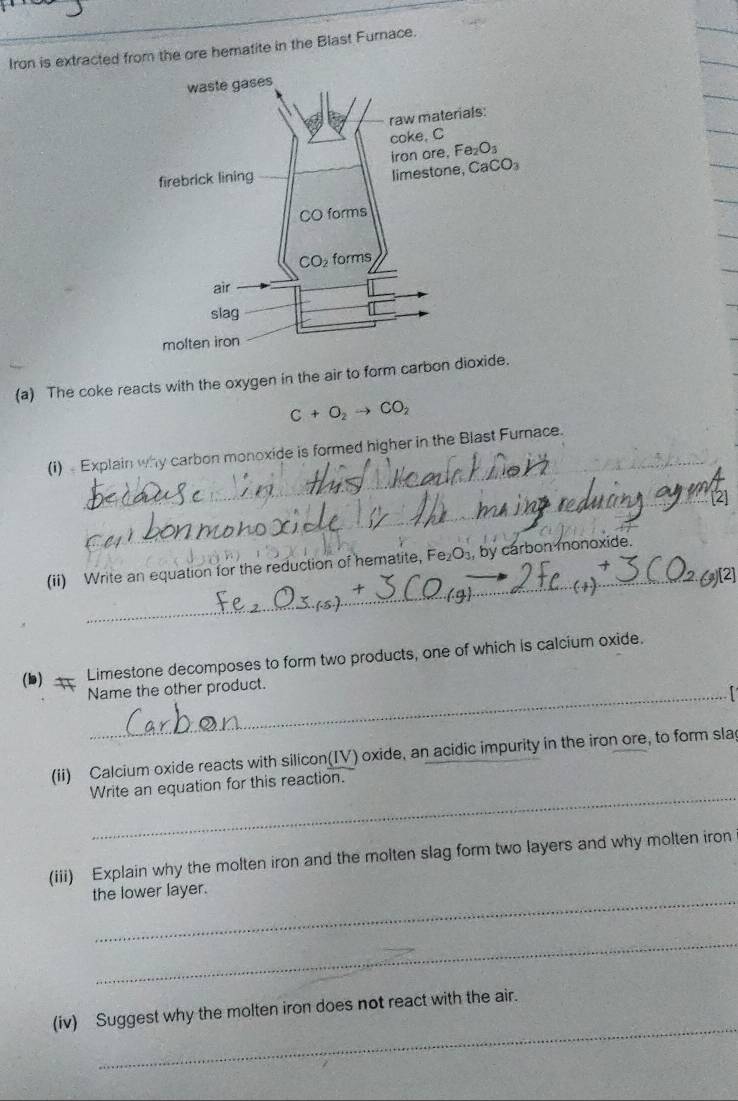 Iron is extracted from the ore hematite in the Blast Furnace.
waste gases
raw materials:
coke, C
iron ore, Fe₂O₃
limestone, CaCO₃
firebrick lining
CO forms
CO₂ forms
air
slag
molten iron
(a) The coke reacts with the oxygen in the air to form carbon dioxide.
C + O₂ → CO₂
(i) Explain why carbon monoxide is formed higher in the Blast Furnace.
because in this
carbonmonoxide is the maing reducing agent [2]
(ii) Write an equation for the reduction of hematite, Fe₂O₃, by carbon monoxide.
Fe₂O₃(s) + 3CO(g) → 2Fe + 3CO₂(g) [2]
(b) Limestone decomposes to form two products, one of which is calcium oxide.
Name the other product.
Carbon
(ii) Calcium oxide reacts with silicon(IV) oxide, an acidic impurity in the iron ore, to form sla
Write an equation for this reaction.
(iii) Explain why the molten iron and the molten slag form two layers and why molten iron
the lower layer.
(iv) Suggest why the molten iron does not react with the air.